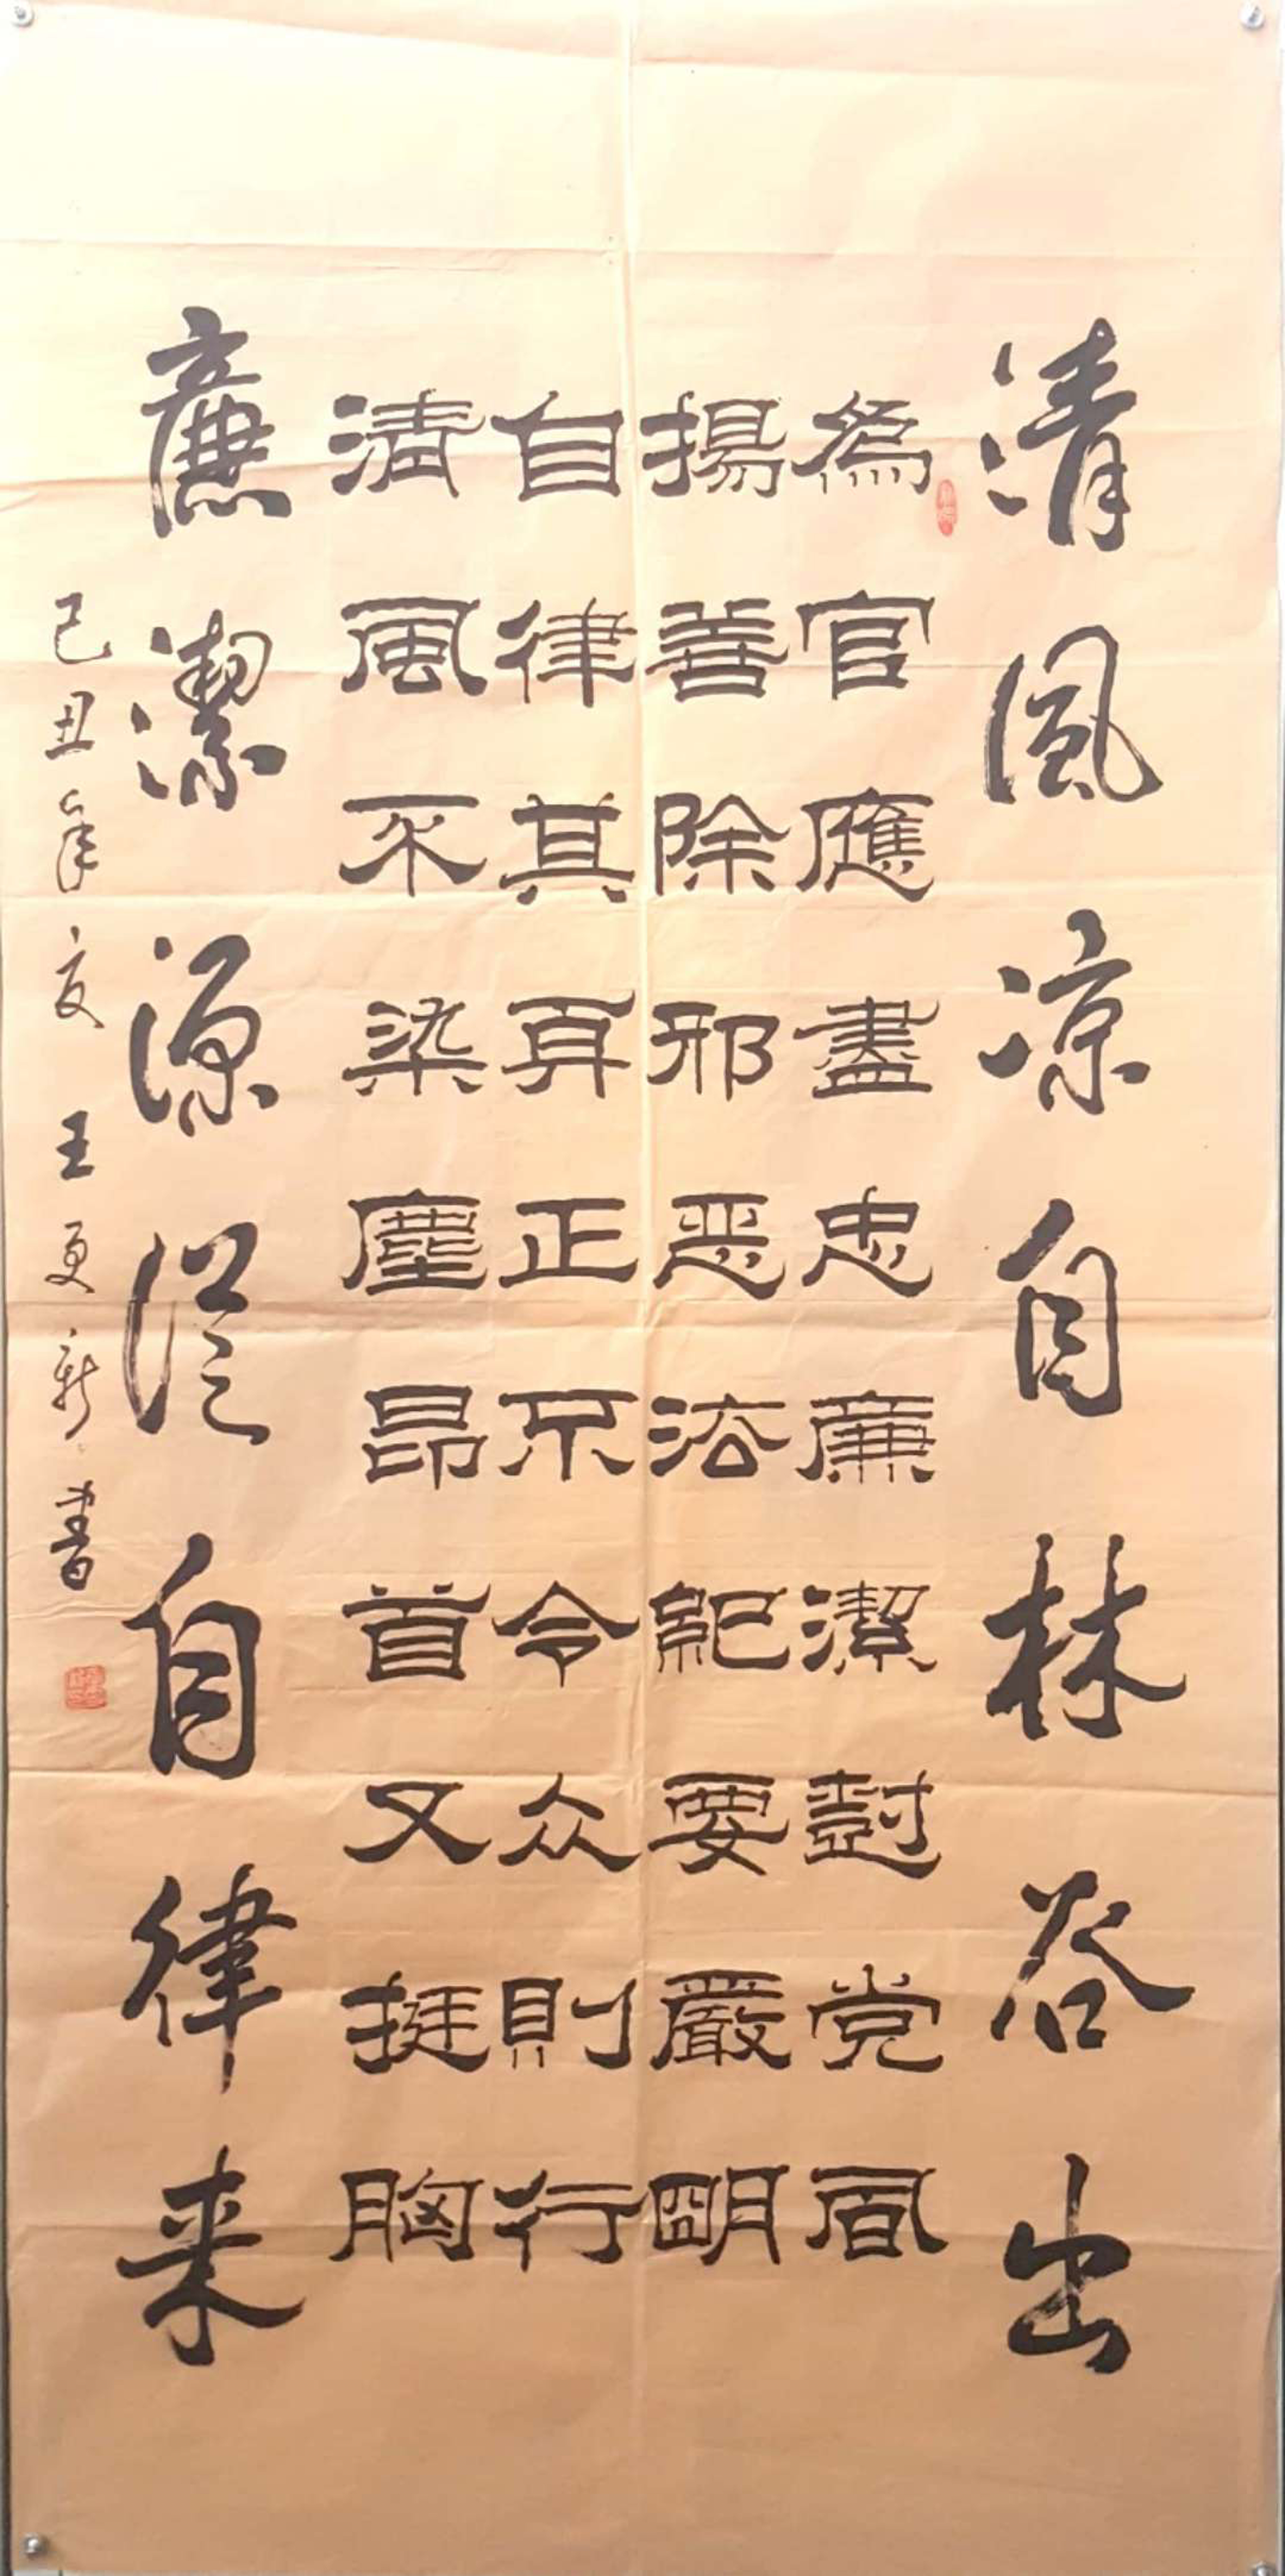 清風凉自林谷出
為官應盡忠廉潔對党
揚善除邪恶法紀要嚴明
自律其身正不令众則行
清風不染塵昂首又挺胸
廉潔源從自律来
己丑年夏王更新書